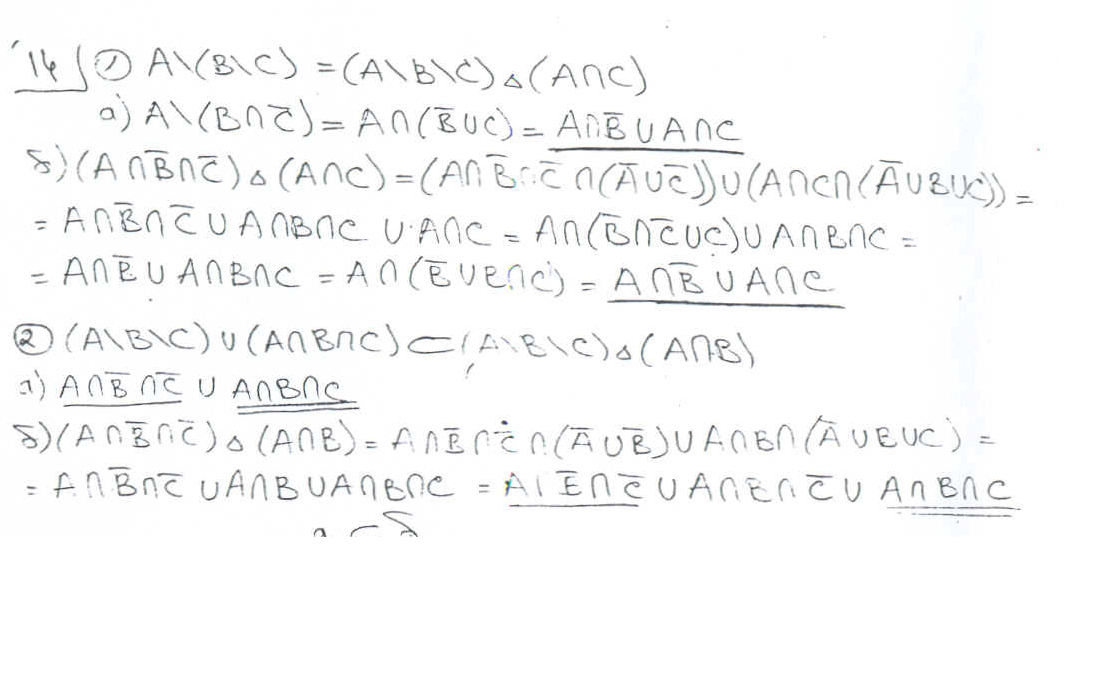 '14 ① A\(B\C) = (A\B\C)△(A∩C)
а) A\(B∩C̅) = A∩(B̅∪C) = A∩B̅∪A∩C
б) (A∩B̅∩C̅)△(A∩C) = (A∩B̅∩C̅∩(A̅∪C̅))∪(A∩C∩(A̅∪B∪C)) =
= A∩B̅∩C̅∪A∩B∩C∪A∩C = A∩(B̅∩C̅∪C)∪A∩B∩C =
= A∩B̅∪A∩B∩C = A∩(B̅∪B∩C) = A∩B̅∪A∩C
② (A\B\C)∪(A∩B∩C)⊂(A\B\C)△(A∩B)
а) A∩B̅∩C̅ ∪ A∩B∩C
б) (A∩B̅∩C̅)△(A∩B) = A∩B̅∩C̅∩(A̅∪B̅)∪A∩B∩(A̅∪B∪C) =
= A∩B̅∩C̅∪A∩B∪A∩B∩C = A∩B̅∩C̅∪A∩B∩C̅∪A∩B∩C
а⊂б